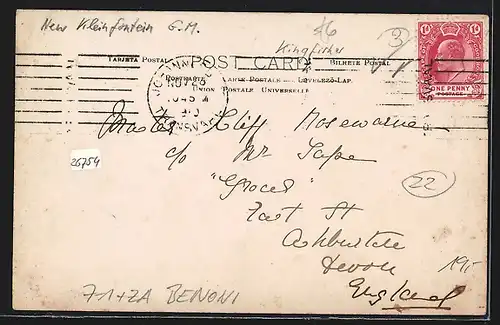 New Kleinfontein G.M.
46
Kingfisher
3
TARJETA POSTAL POST CARD BILHETE POSTAL
POSTKARTE CARTE POSTALE LEVELEZŐ-LAP
UNION POSTALE UNIVERSELLE
1d 1d
ONE PENNY
POSTAGE
NOV 26
1045
TRANSVAAL
Master Cliff Rosewarne
c/o Mr
"Grocer"
East St
26754
22
Ashburton
Devon
England
195
71+ZA BENONI